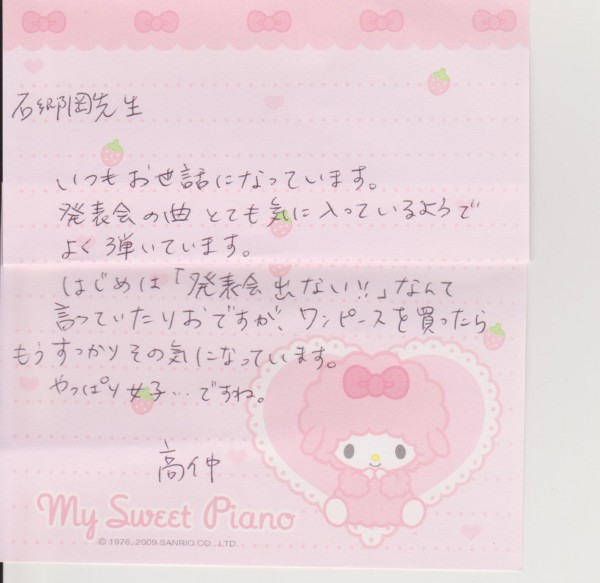 石郷岡先生
いつもお世話になっています。
発表会の曲 とても気に入っているようで
よく弾いています。
はじめは「発表会出ない!!」なんて
言っていたりおですが、ワンピースを買ったら
もうすっかりその気になっています。
やっぱり女子…ですね。
高仲
My Sweet Piano
© 1976, 2009 SANRIO CO., LTD.